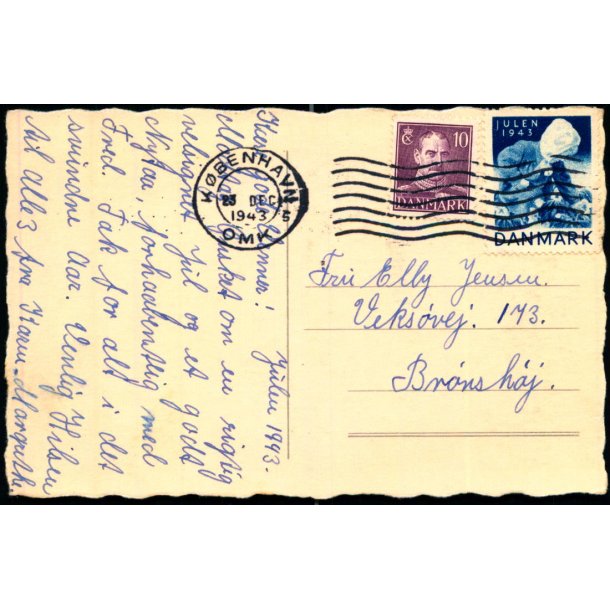 Julen 1943.
Kære Sommer!
Modtag Ønsket om en rigtig
velsignet Jul og et godt
Nytaar, forhaabentlig med
Fred. Tak for alt i det
svindne Aar. Venlig Hilsen
til Alle 3 fra Karen-Margrethe
KØBENHAVN
23 DEC
1943 5
OMK
10
DANMARK
JULEN
1943
DANMARK
Fru Elly Jensen.
Veksøvej. 173.
Brønshøj.